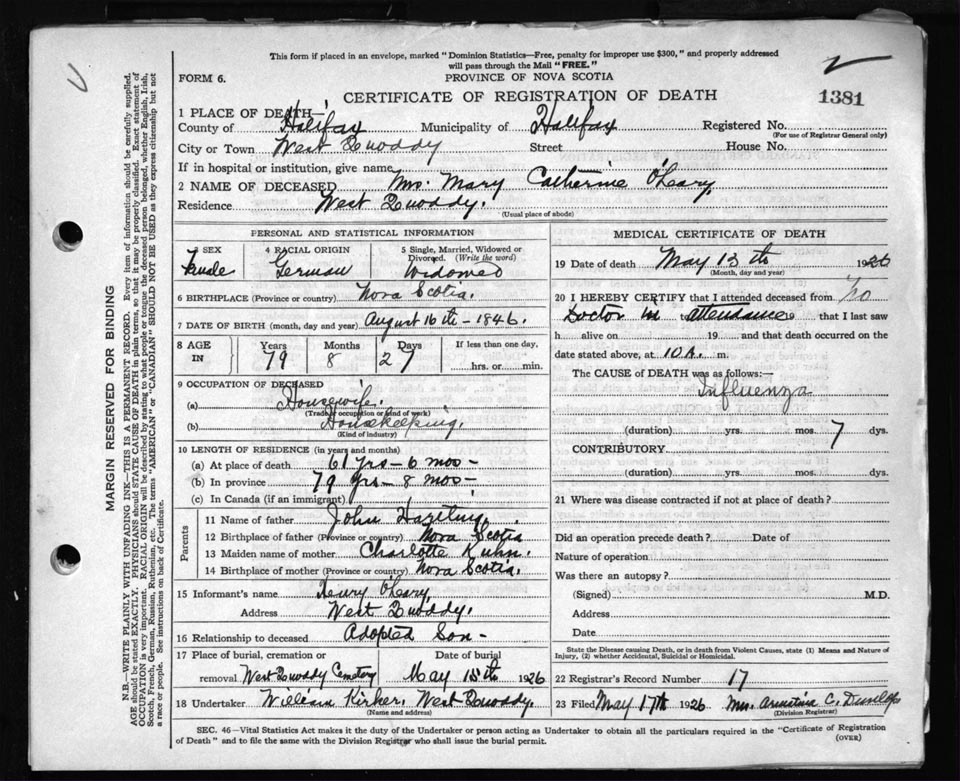 This form if placed in an envelope, marked "Dominion Statistics—Free, penalty for improper use $300," and properly addressed
will pass through the Mail "FREE."
FORM 6.
PROVINCE OF NOVA SCOTIA
CERTIFICATE OF REGISTRATION OF DEATH
1381
1 PLACE OF DEATH—
County of Halifax Municipality of Halifax Registered No.
(For use of Registrar General only)
City or Town West Quoddy Street House No.
If in hospital or institution, give name
2 NAME OF DECEASED Mrs. Mary Catherine O'Leary
Residence West Quoddy.
(Usual place of abode)
PERSONAL AND STATISTICAL INFORMATION
3 SEX 4 RACIAL ORIGIN 5 Single, Married, Widowed or Divorced. (Write the word)
Female German Widowed
6 BIRTHPLACE (Province or country) Nova Scotia.
7 DATE OF BIRTH (month, day and year) August 16th - 1846.
8 AGE IN Years Months Days If less than one day,
79 8 27 hrs. or min.
9 OCCUPATION OF DECEASED
(a) Housewife.
(Trade or occupation or kind of work)
(b) Housekeeping.
(Kind of industry)
10 LENGTH OF RESIDENCE (in years and months)
(a) At place of death 61 yrs - 6 mos -
(b) In province 79 yrs - 8 mos -
(c) In Canada (if an immigrant)
Parents
11 Name of father John
12 Birthplace of father (Province or country) Nova Scotia
13 Maiden name of mother Charlotte Kuhn.
14 Birthplace of mother (Province or country) Nova Scotia.
15 Informant's name Henry O'Leary,
Address West Quoddy.
16 Relationship to deceased Adopted Son -
17 Place of burial, cremation or removal West Quoddy Cemetery Date of burial May 15th 1926
18 Undertaker William Kirker, West Quoddy.
(Name and address)
MEDICAL CERTIFICATE OF DEATH
19 Date of death May 13th 1926
(Month, day and year)
20 I HEREBY CERTIFY that I attended deceased from no
Doctor in attendance that I last saw
h alive on 19 and that death occurred on the
date stated above, at 10 A. m.
The CAUSE OF DEATH was as follows:—
Influenza
(duration) yrs. mos. 7 dys.
CONTRIBUTORY.
(duration) yrs. mos. dys.
21 Where was disease contracted if not at place of death?
Did an operation precede death? Date of
Nature of operation
Was there an autopsy?
(Signed) M.D.
Address
Date
State the Disease causing Death, or in death from Violent Causes, state (1) Means and Nature of
Injury, (2) whether Accidental, Suicidal or Homicidal.
22 Registrar's Record Number 17
23 Filed May 17th 1926 Mrs. C. Dunlop
(Division Registrar)
SEC. 46—Vital Statistics Act makes it the duty of the Undertaker or person acting as Undertaker to obtain all the particulars required in the "Certificate of Registration
of Death" and to file the same with the Division Registrar who shall issue the burial permit.
(OVER)
MARGIN RESERVED FOR BINDING
N.B.—WRITE PLAINLY WITH UNFADING INK—THIS IS A PERMANENT RECORD. Every item of information should be carefully supplied.
AGE should be stated EXACTLY. PHYSICIANS should STATE CAUSE OF DEATH in plain terms, so that it may be properly classified. Exact statement of
OCCUPATION is very important. RACIAL ORIGIN will be described by stating to what people or tongue the deceased person belonged, whether English, Irish,
Scotch, French, German, Russian, Ruthenian, etc. The terms "AMERICAN" or "CANADIAN" SHOULD NOT BE USED as they express citizenship but not
a race or people. See instructions on back of Certificate.